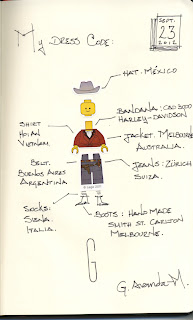 My Dress Code:
SEPT.
23
2012
HAT: MÉXICO
BANDANA: CBO 3000
HARLEY-DAVIDSON
SHIRT
HOIAN
VIETNAM.
JACKET. MELBOURNE
AUSTRALIA.
BELT.
BUENOS AIRES
ARGENTINA
JEANS: ZÜRICH
SUIZA.
SOCKS:
SIENA.
ITALIA.
BOOTS: HAND MADE
SMITH ST. CARLTON
MELBOURNE.
G
G. Aranda-M.